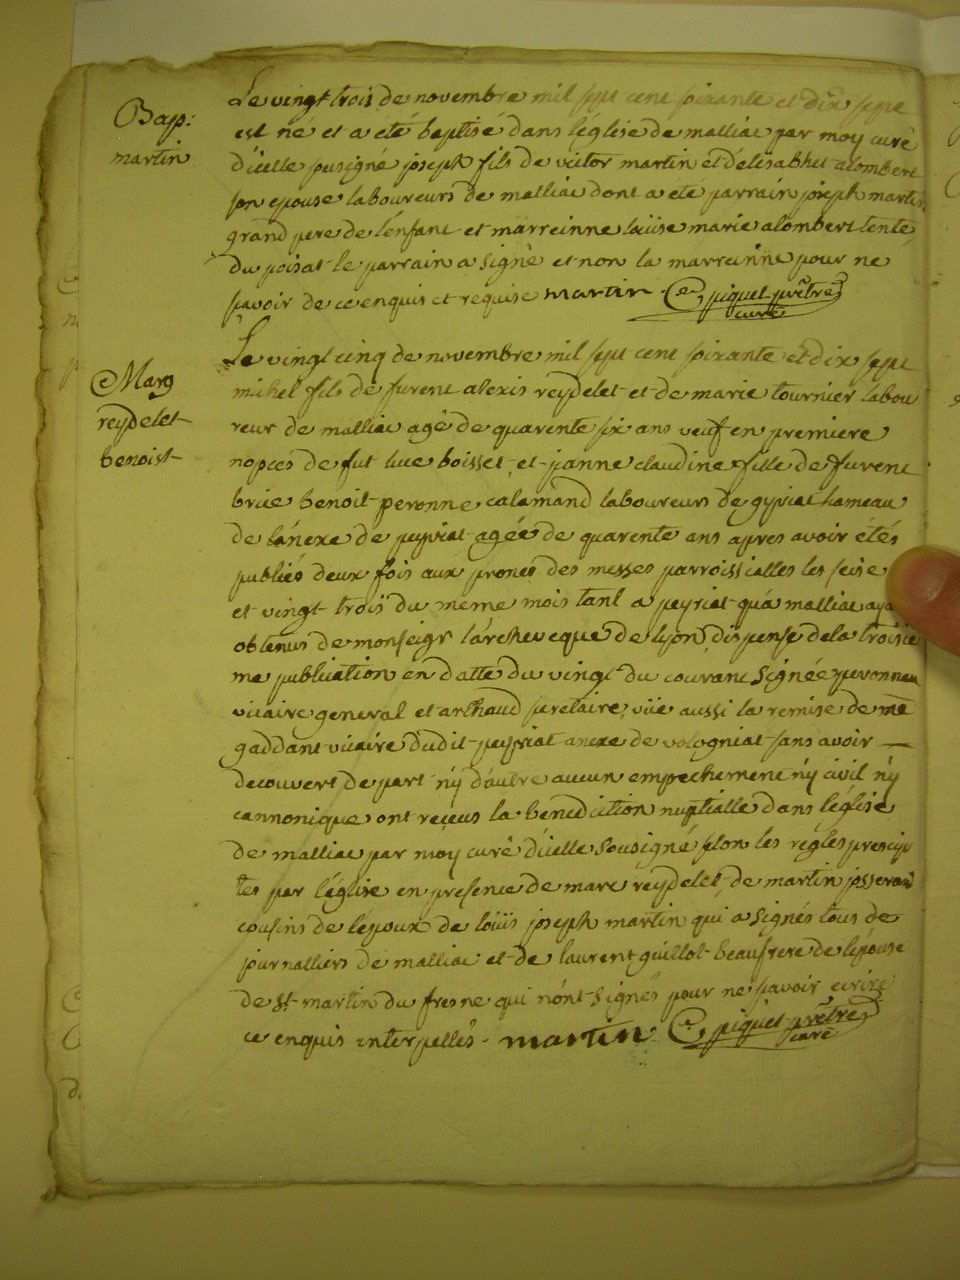 Bap:
martin
Le vingt trois de novembre mil sept cent soixante et dix sept
est né et a été baptisé dans l'église de malliac par moy curé
d'icelle susigné joseph fils de victor martin et d'elisabhet alombert
son epouse laboureurs de malliac dont a eté parrain joseph martin
grand pere de l'enfant et marreinne loüise marie alombert tente
du poisat le parrain a signé et non la marreinne pour ne
savoir de ce enquis et requise martin piquet prêtre
curé
Marg
reydelet
benoist
Le vingt cinq de novembre mil sept cent soixante et dix sept
michel fils de furent alexis reydelet et de marie tournier labou
reur de malliac agé de quarente six ans veuf en premiere
nopces de fut luce boisset et janne claudine fille de furent
brice benoit peronne calamand laboureurs de gyriat hameau
de l'anexe de peyriat agée de quarente ans apres avoir étés
publiés deux fois aux prones des messes parroissialles les seise
et vingt trois du meme mois tant a peyriat qu'a malliac aya
obtenus de monseigr l'archeveque de lyon dispense de la troisie
me publication en datte du vingt du courant signée peronneau
vicaire general et arthaud secretaire, viie aussi la remise de me
gaddant vicaire dudit peyriat anexe de vologniat sans avoir
decouvert de part n'y d'autre aucun empechement n'y civil n'y
cannonique ont reçeus la benediction nuptialle dans l'église
de malliac par moy curé d'icelle sousigné selon les regles prescrip
tes par l'église en presence de marc reydelet de martin josserand
cousins de l'epoux de loüis joseph martin qui a signés tous de
journalliers de malliac et de laurent guillot beaufrere de l'epouse
de st martin du fresne qui n'ont signés pour ne savoir ecrire
ce enquis interpellés. martin piquet prêtre
curé